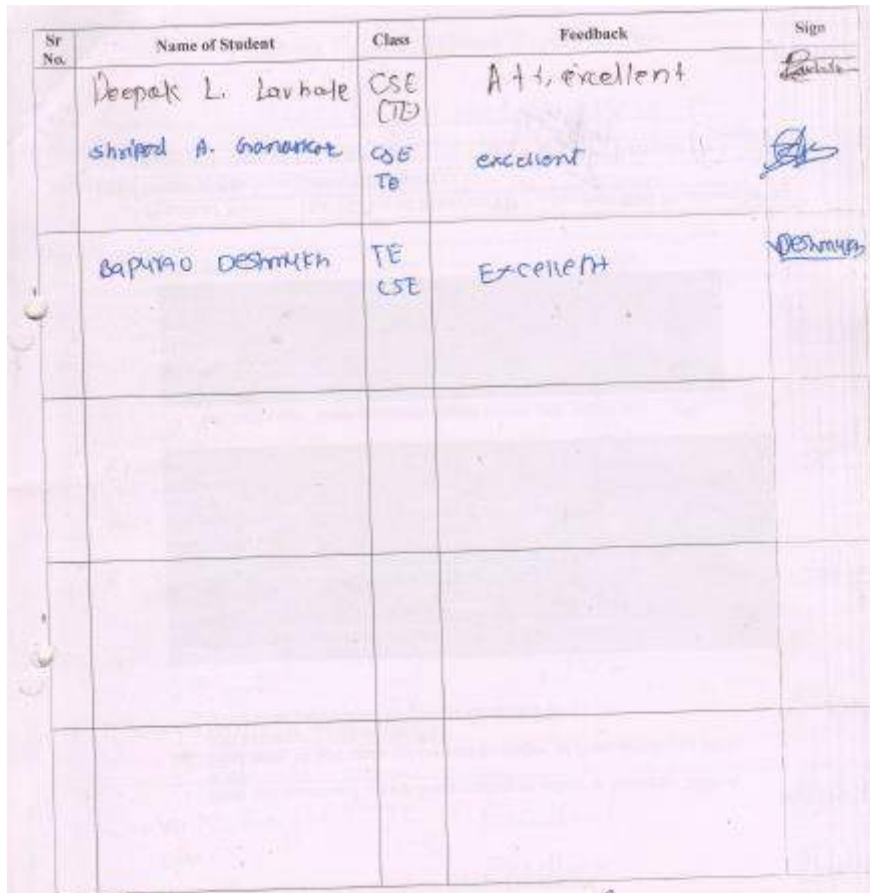 Sr No. Name of Student Class Feedback Sign
Deepak L. Lavhale CSE A++, excellent
(TE)
Shripad A. CSE excellent
TE
Bapurao Deshmukh TE Excellent Deshmukh
CSE